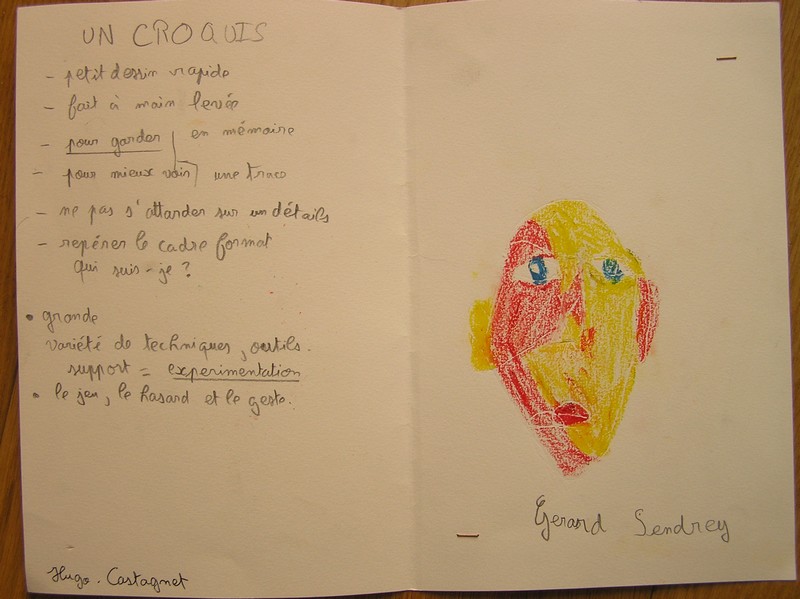 UN CROQUIS
- petit dessin rapide
- fait à main levée
- pour garder en mémoire
- pour mieux voir une trace
- ne pas s'attarder sur un détails
- repérer le cadre format
qui suis-je ?
• grande
variété de techniques, outils.
support = experimentation
• le jeu, le hasard et le geste.
Hugo. Castagnet
Gerard Sendrey